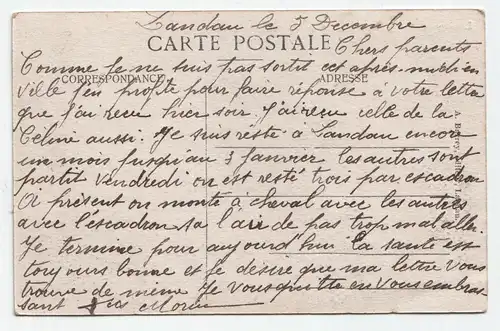 Landau le 5 Decembre
CARTE POSTALE
Chers parents
Comme Je ne suis pas sortit cet après-midi en
CORRESPONDANCE ADRESSE
ville J'en profite pour faire réponse à votre lettre
que j'ai recu hier soir. J'ai recu celle de la
Céline aussi. Je suis resté à Landau encore
un mois jusqu'au 3 Janvier les autres sont
partit vendredi on est resté trois par escadron
A présent on monte à cheval avec les autres
avec l'escadron sa l'air de pas trop mal aller.
Je termine pour aujourd'hui la santé est
toujours bonne et je désire que ma lettre vous
trouve de même Je vous quitte en vous embras
sant